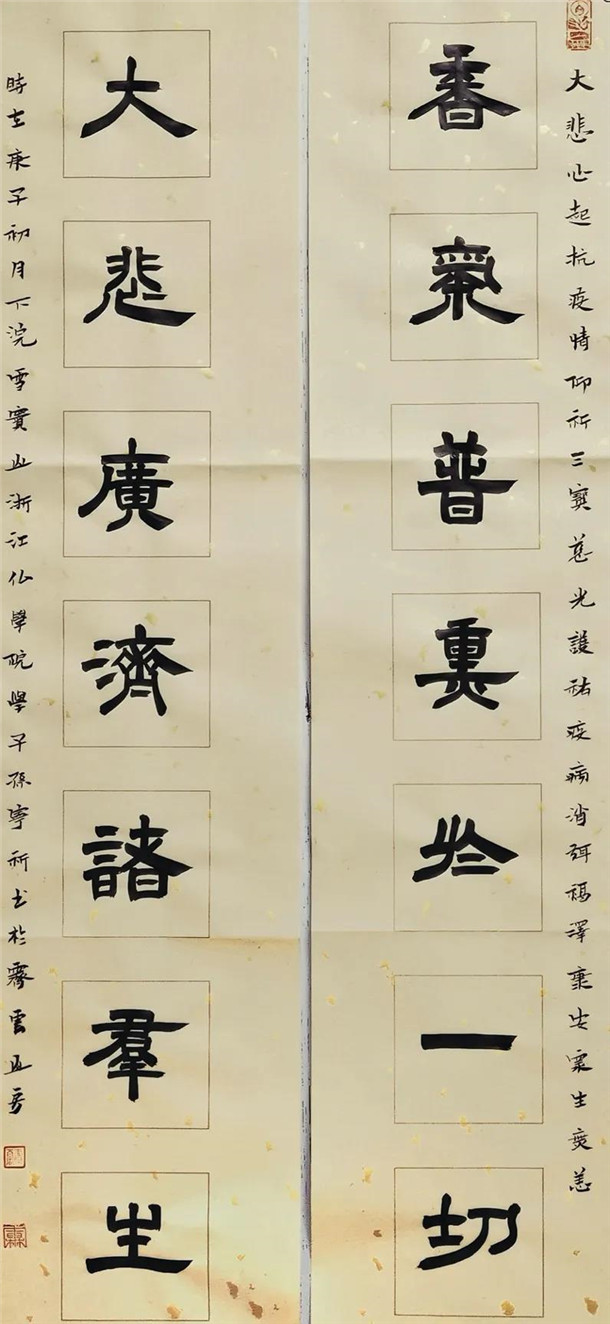 大悲心起抗疫情仰祈三寶慈光護祐疫病消弭福澤康安眾生無恙
香氣普熏於一切
大悲廣濟諸羣生
時在庚子初月下浣雪竇山浙江仏學院學子孫寧祈書於雲山房